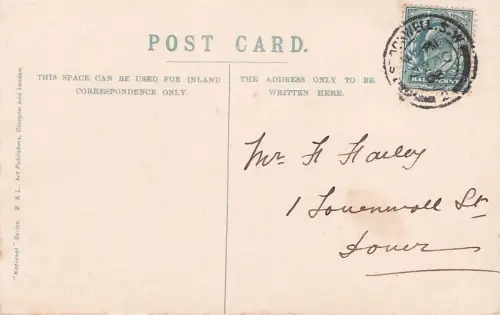 POST CARD.
THIS SPACE CAN BE USED FOR INLAND
CORRESPONDENCE ONLY.
THE ADDRESS ONLY TO BE
WRITTEN HERE.
Mr H Hailey
1 Townwall St
Dover
"National" Series. M. & L., Art Publishers, Glasgow and London
HALFPENNY